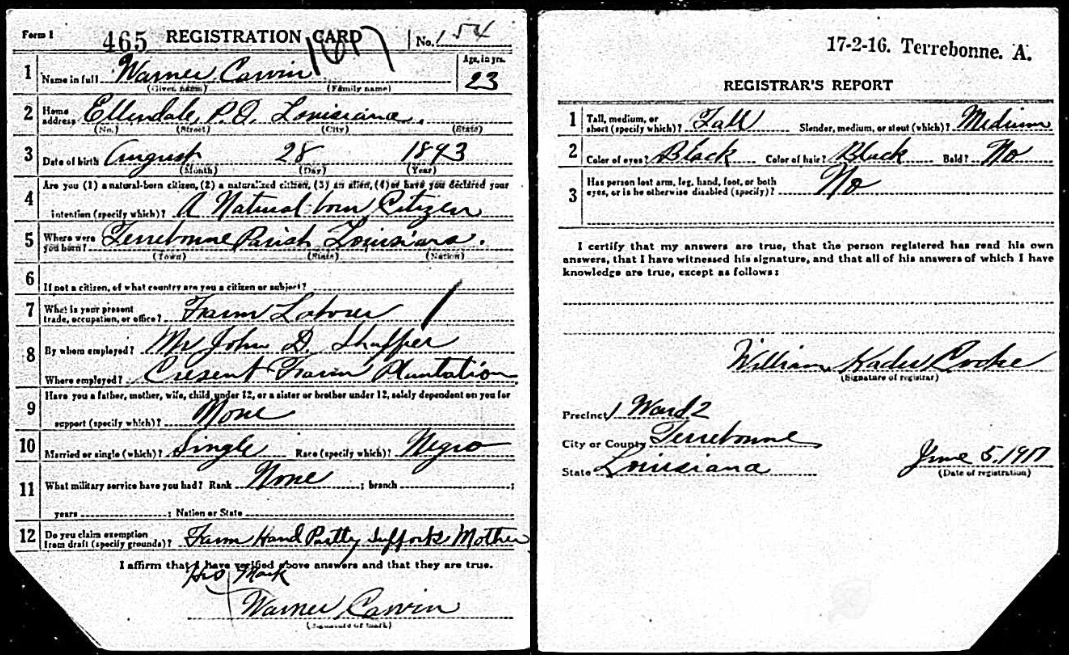 Form 1 465 REGISTRATION CARD No. 154
1 Name in full Warner Carvin Age, in yrs. 23
(Given name) (Family name)
2 Home address Ellendale, P.O. Louisiana.
(No.) (Street) (City) (State)
3 Date of birth August 28 1893
(Month) (Day) (Year)
4 Are you (1) a natural-born citizen, (2) a naturalized citizen, (3) an alien, (4) or have you declared your
intention (specify which)? A Natural-born Citizen
5 Where were you born? Terrebonne Parish Louisiana.
(Town) (State) (Nation)
6 If not a citizen, of what country are you a citizen or subject?
7 What is your present trade, occupation, or office? Farm Laborer
8 By whom employed? Mr John D. Shaffer
Where employed? Cresent Farm Plantation
9 Have you a father, mother, wife, child under 12, or a sister or brother under 12, solely dependent on you for
support (specify which)? None
10 Married or single (which)? Single Race (specify which)? Negro
11 What military service have you had? Rank None ; branch ;
years ; Nation or State
12 Do you claim exemption from draft (specify grounds)? Farm Hand Partly Supports Mother
I affirm that I have verified above answers and that they are true.
His Mark
Warner Carvin
(Signature or mark)
17-2-16. Terrebonne. A.
REGISTRAR'S REPORT
1 Tall, medium, or short (specify which)? Tall Slender, medium, or stout (which)? Medium
2 Color of eyes? Black Color of hair? Black Bald? No
3 Has person lost arm, leg, hand, foot, or both
eyes, or is he otherwise disabled (specify)? No
I certify that my answers are true, that the person registered has read his own
answers, that I have witnessed his signature, and that all of his answers of which I have
knowledge are true, except as follows:
William Cocke
(Signature of registrar)
Precinct 1 Ward 2
City or County Terrebonne
State Louisiana June 5, 1917
(Date of registration)